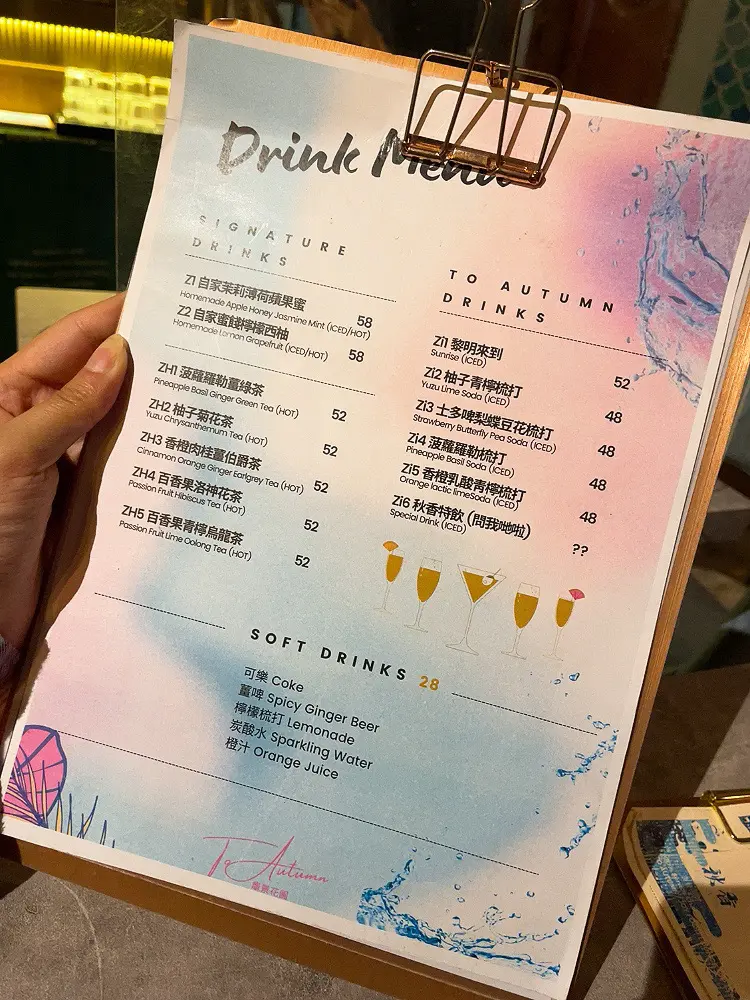 Drink Menu
SIGNATURE
DRINKS
Z1 自家茉莉薄荷蘋果蜜 58
Homemade Apple Honey Jasmine Mint (ICED/HOT)
Z2 自家蜜餞檸檬西柚 58
Homemade Lemon Grapefruit (ICED/HOT)
ZH1 菠蘿羅勒薑綠茶 52
Pineapple Basil Ginger Green Tea (HOT)
ZH2 柚子菊花茶 52
Yuzu Chrysanthemum Tea (HOT)
ZH3 香橙肉桂薑伯爵茶 52
Cinnamon Orange Ginger Earlgrey Tea (HOT)
ZH4 百香果洛神花茶 52
Passion Fruit Hibiscus Tea (HOT)
ZH5 百香果青檸烏龍茶 52
Passion Fruit Lime Oolong Tea (HOT)
TO AUTUMN
DRINKS
Zi1 黎明來到 52
Sunrise (ICED)
Zi2 柚子青檸梳打 48
Yuzu Lime Soda (ICED)
Zi3 士多啤梨蝶豆花梳打 48
Strawberry Butterfly Pea Soda (ICED)
Zi4 菠蘿羅勒梳打 48
Pineapple Basil Soda (ICED)
Zi5 香橙乳酸青檸梳打 48
Orange lactic limeSoda (ICED)
Zi6 秋香特飲 (問我哋啦) ??
Special Drink (ICED)
SOFT DRINKS 28
可樂 Coke
薑啤 Spicy Ginger Beer
檸檬梳打 Lemonade
炭酸水 Sparkling Water
橙汁 Orange Juice
To Autumn